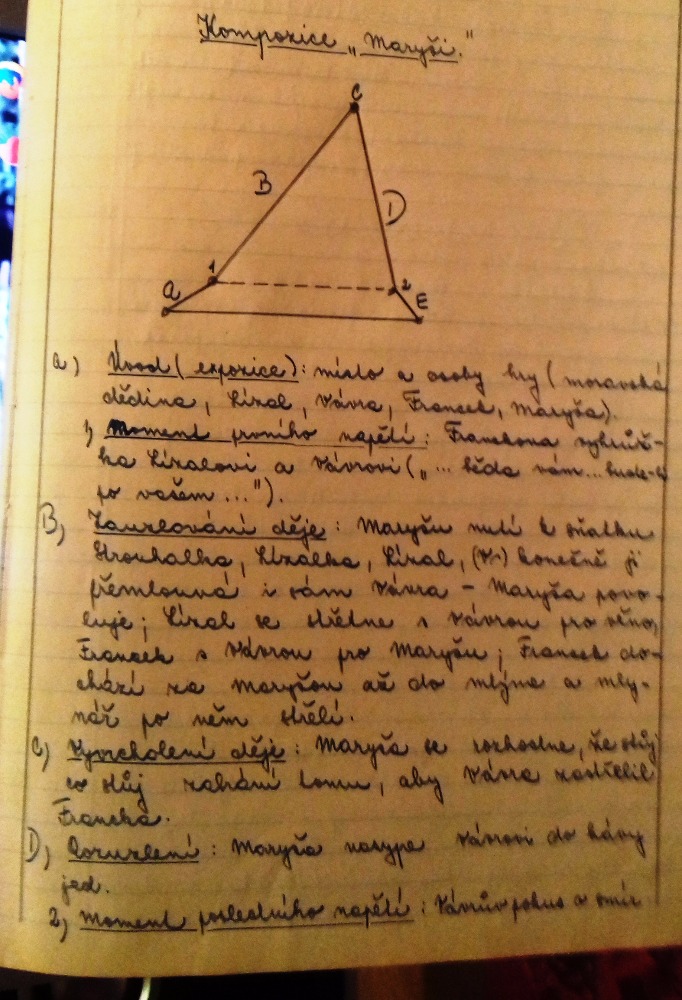 Kompozice „Maryši."
C
B
D
1
2
a
E
a) Úvod (expozice): místo a osoby hry (moravská
dědina, Lízal, Vávra, Francek, Maryša).
1) Moment prvního napětí: Franckova vyhrůž-
ka Lízalovi a Vávrovi („... běda vám... bude-li
po vašem ...").
B) Zauzlování děje: Maryšu nutí k sňatku
Strouhalka, Lízalka, Lízal, konečně ji
přemlouvá i sám Vávra – Maryša povo-
luje; Lízal se střetne s Vávrou pro věno,
Francek s Vávrou pro Maryšu; Francek do-
chází za Maryšou až do mlýna a mly-
nář po něm střelí.
C) Vyvrcholení děje: Maryša se rozhodne, že stůj
co stůj zabrání tomu, aby Vávra zastřelil
Francka.
D) Rozuzlení: Maryša nasype Vávrovi do kávy
jed.
2) Moment posledního napětí: Vávrův pokus o smír